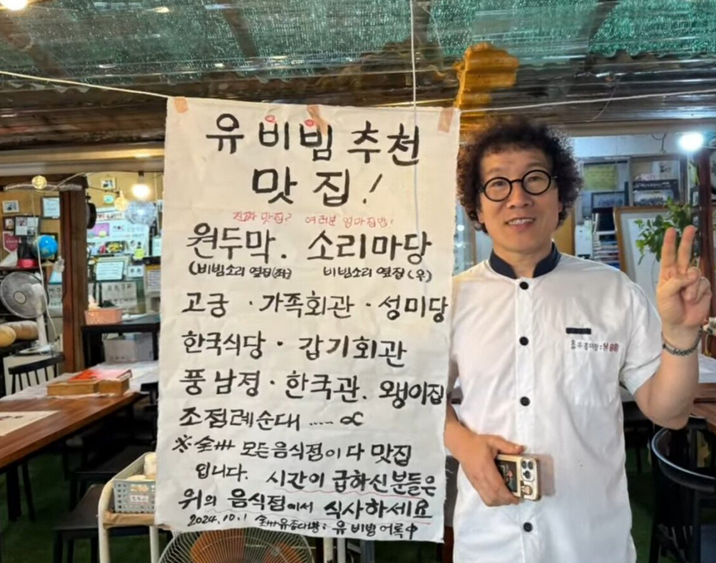 유비빔 추천
맛집!
진짜 맛집? 여러분 엄마집밥!
원두막. 소리마당
(비빔소리 옆집(좌) 비빔소리 옆집(우)
고궁 · 가족회관 · 성미당
한국식당 · 갑기회관
풍남정 · 한국관. 왱이집
조점례순대 ..... ∝
※ 全州 모든음식점이 다 맛집
입니다. 시간이 급하신분들은
위의 음식점에서 식사하세요
2024.10.1 유 비빔 어록中